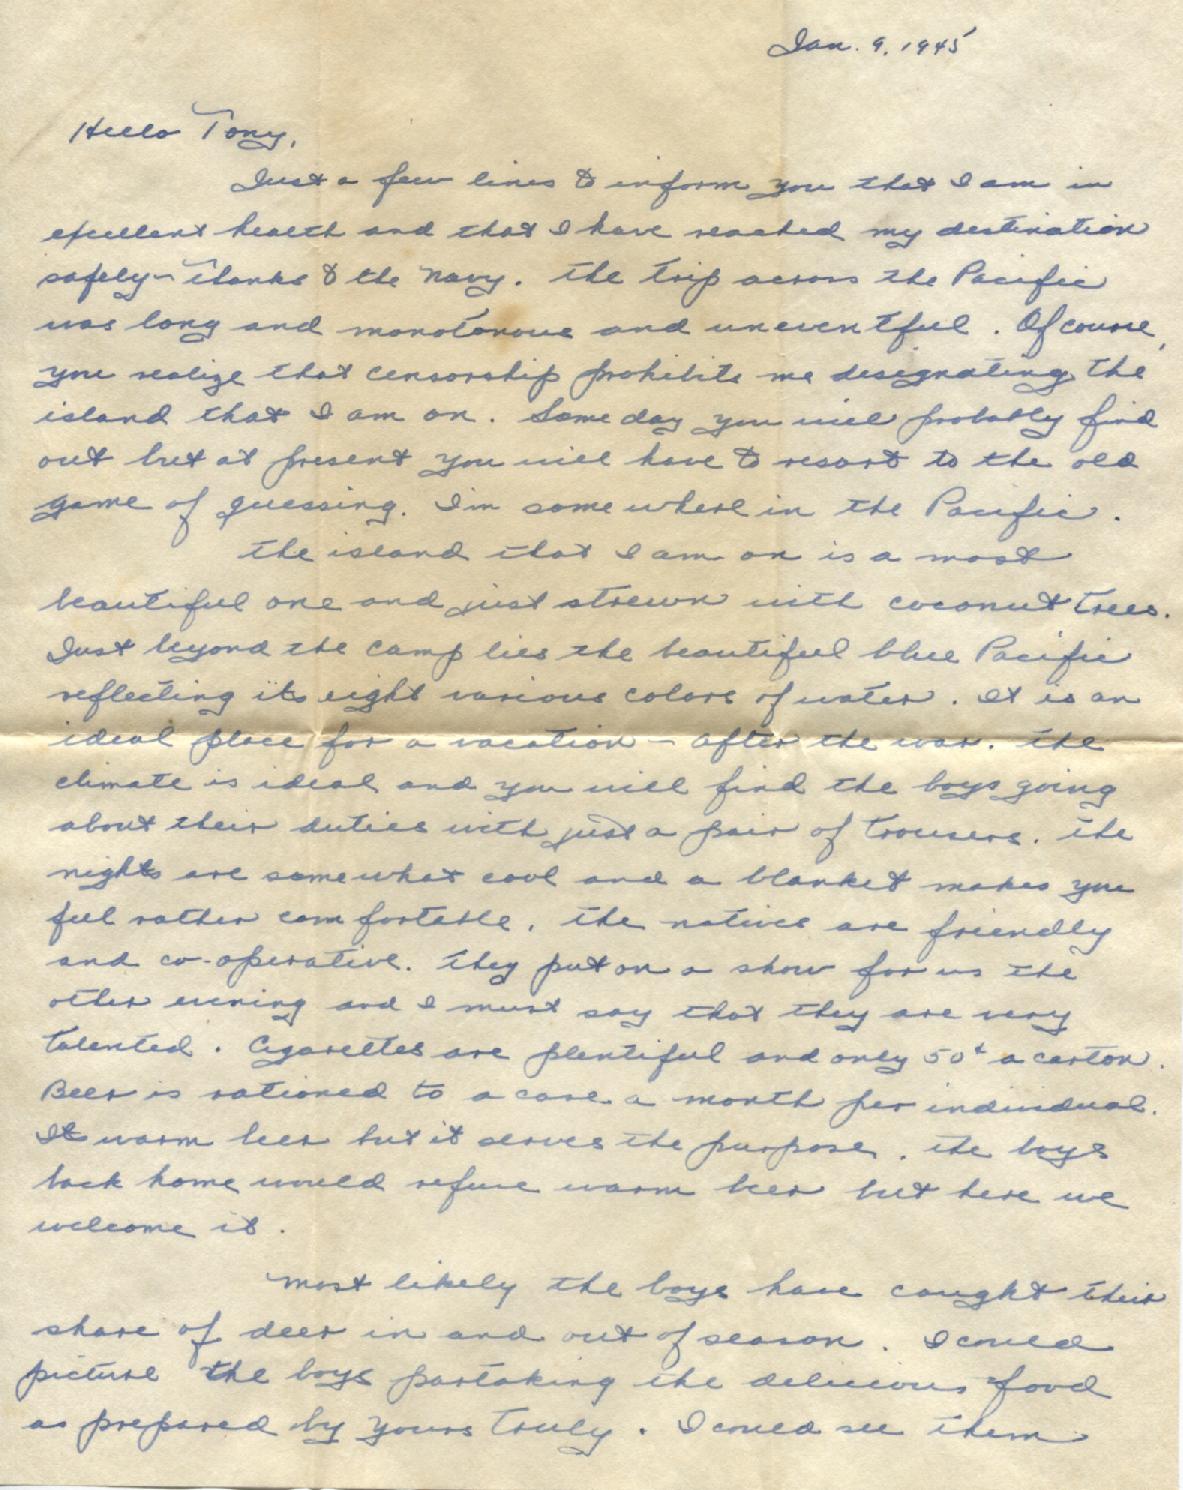 Jan. 9, 1945
Hello Tony,
Just a few lines to inform you that I am in
excellent health and that I have reached my destination
safely - Thanks to the Navy. The trip across the Pacific
was long and monotonous and uneventful. Of course,
you realize that censorship prohibits me designating the
island that I am on. Some day you will probably find
out but at present you will have to resort to the old
game of guessing. I'm somewhere in the Pacific.
The island that I am on is a most
beautiful one and just strewn with coconut trees.
Just beyond the camp lies the beautiful blue Pacific
reflecting its eight various colors of water. It is an
ideal place for a vacation - after the war. The
climate is ideal and you will find the boys going
about their duties with just a pair of trousers. The
nights are somewhat cool and a blanket makes you
feel rather comfortable. The natives are friendly
and co-operative. They put on a show for us the
other evening and I must say that they are very
talented. Cigarettes are plentiful and only 50¢ a carton.
Beer is rationed to a case a month per individual.
It warm beer but it serves the purpose. The boys
back home would refuse warm beer but here we
welcome it.
Most likely the boys have caught their
share of deer in and out of season. I could
picture the boys partaking the delicious food
as prepared by yours truly. I could see them